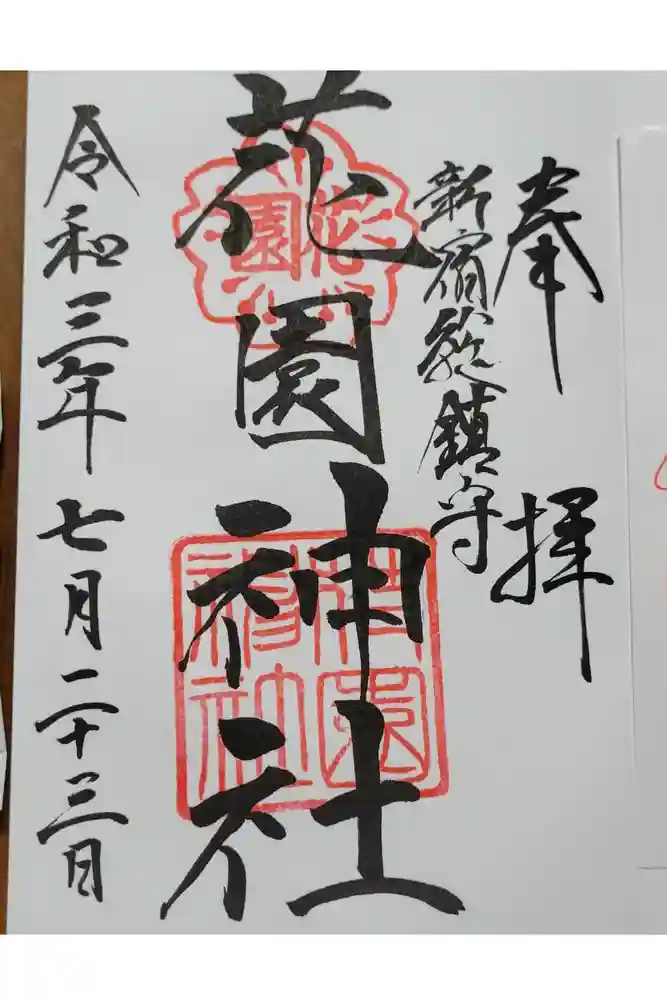 奉拝
新宿総鎮守
花園神社
花園
花園神社
令和三年七月二十三日